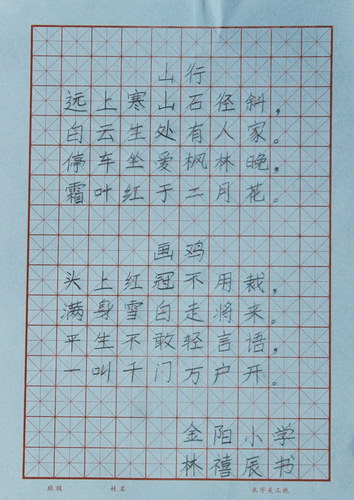 山行
远上寒山石径斜，
白云生处有人家。
停车坐爱枫林晚，
霜叶红于二月花。
画鸡
头上红冠不用裁，
满身雪白走将来。
平生不敢轻言语，
一叫千门万户开。
金阳小学
林禧辰书
班级 姓名